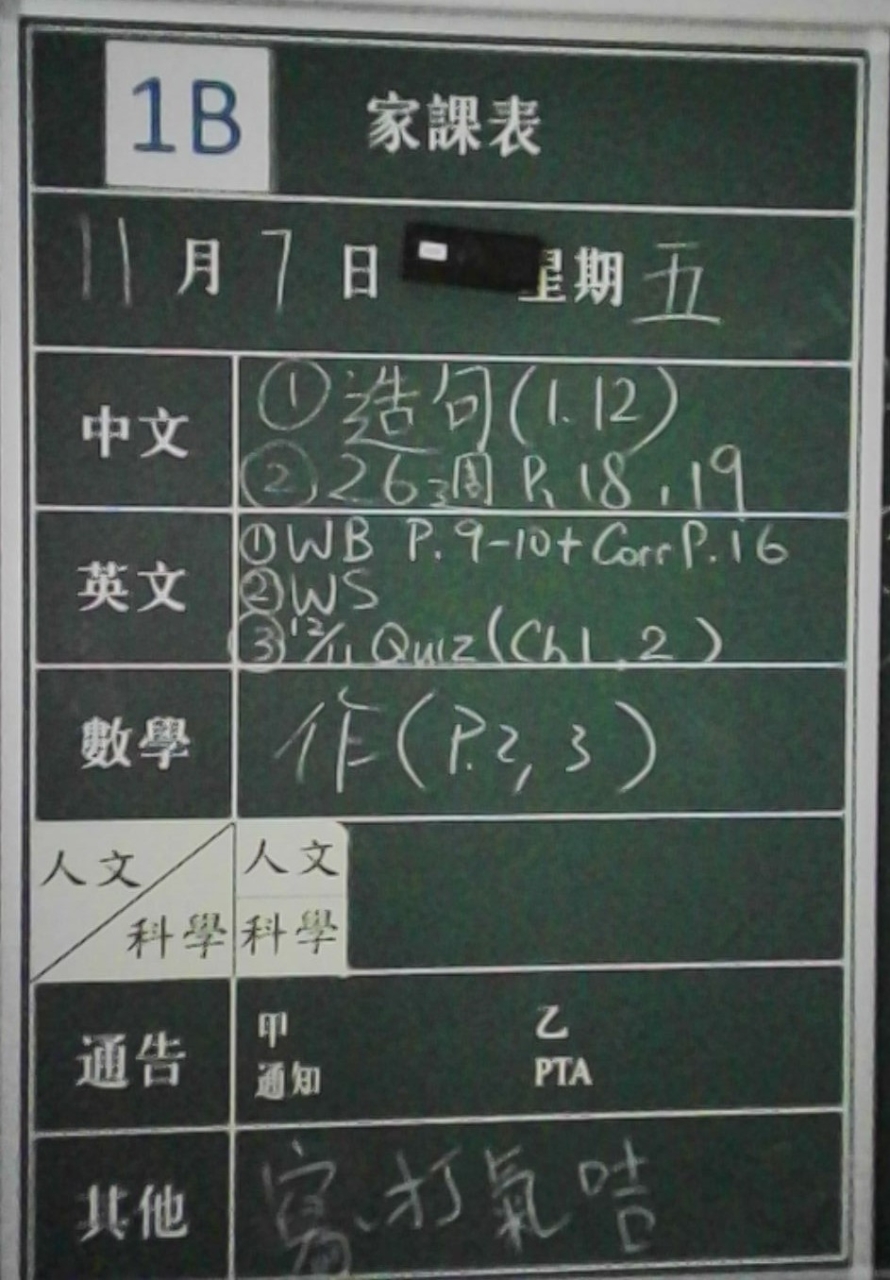 1B 家課表
11月7日 星期五
中文
①造句(1.12)
②26周 P.18,19
英文
①WB P.9-10+Corr P.16
②WS
③12/11 Quiz(Ch1,2)
數學
作(P.2,3)
人文 科學
人文
科學
通告
甲 乙
通知 PTA
其他
寫打氣咭